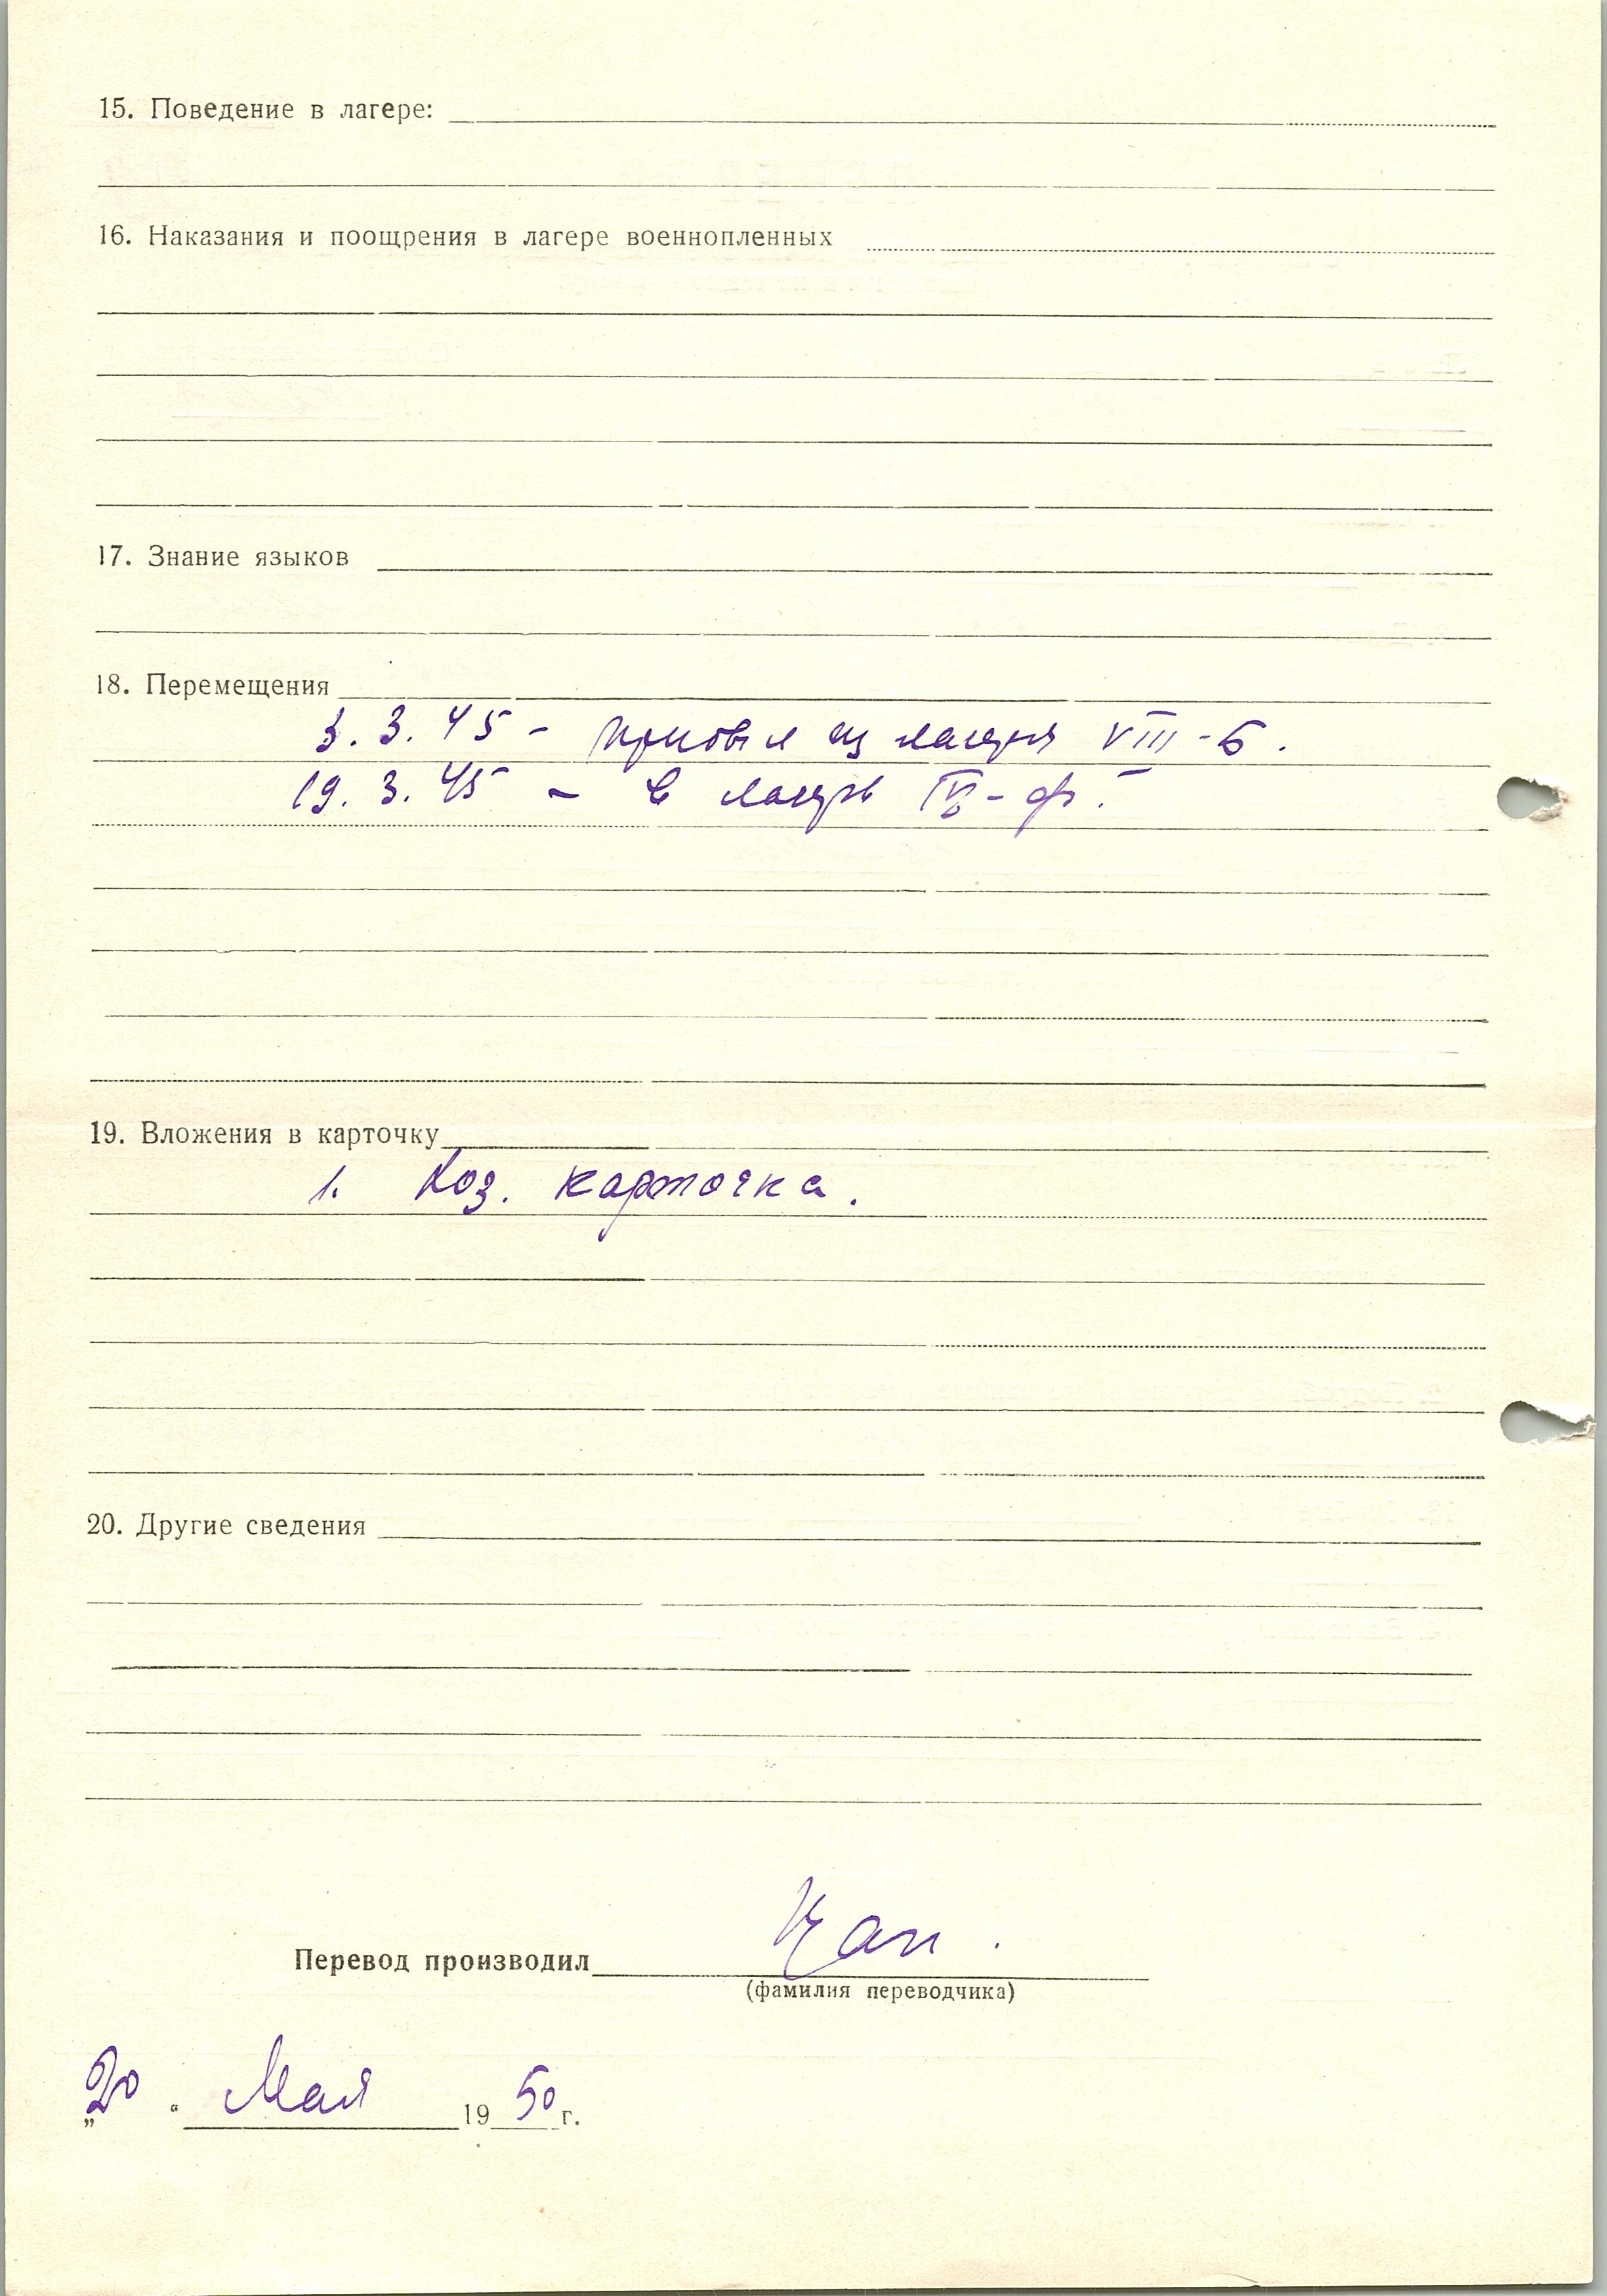 15. Поведение в лагере:
16. Наказания и поощрения в лагере военнопленных
17. Знание языков
18. Перемещения
3. 3. 45 - прибыл из лагеря VIII-Б.
19. 3. 45 - в лагерь IV-ф.
19. Вложения в карточку
1. Хоз. карточка.
20. Другие сведения
Перевод производил
(фамилия переводчика)
„20“ Мая 1950 г.